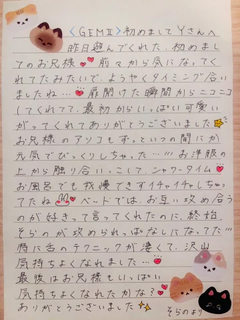 《GEM Ⅱ》初めましてYさんへ
昨日遊んでくれた、初めまし
てのお兄様♥前々から気になってく
れてたみたいで、ようやくタイミング合い
ましたね…♥扉開けた瞬間からニコニコ
してくれてて、最初からいっぱい可愛い
がってくれてありがとうございました
お兄様のアソコもずっといつの間にか
元気でびっくりしちゃった…お洋服の
上から触り合いっこして、シャワータイム
お風呂でも我慢できずイチャイチャしちゃっ
てたね ベッドでは、お互い攻め合う
のが好きって言ってくれたのに、終始、
そらのが攻められぱなしになってた…
特に舌のテクニックが凄くて、沢山
気持ちよくなれました…♥
最後はお兄様もいっぱい
気持ちよくなれたかな?
ありがとうございました
そらのより